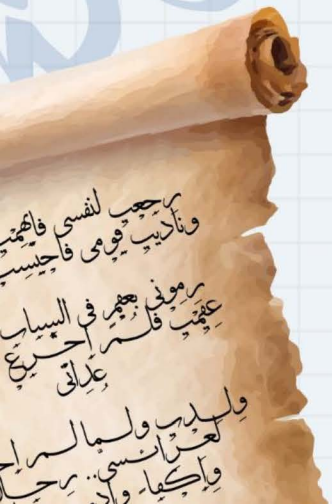 رجعت لنفسي فاتهمت
وناديت قومي فاحتسبت
رموني بعقم في الشباب
عقمت فلم اجزع
عداتي
ولدت ولما لم
لعرائسي..
واكفاء